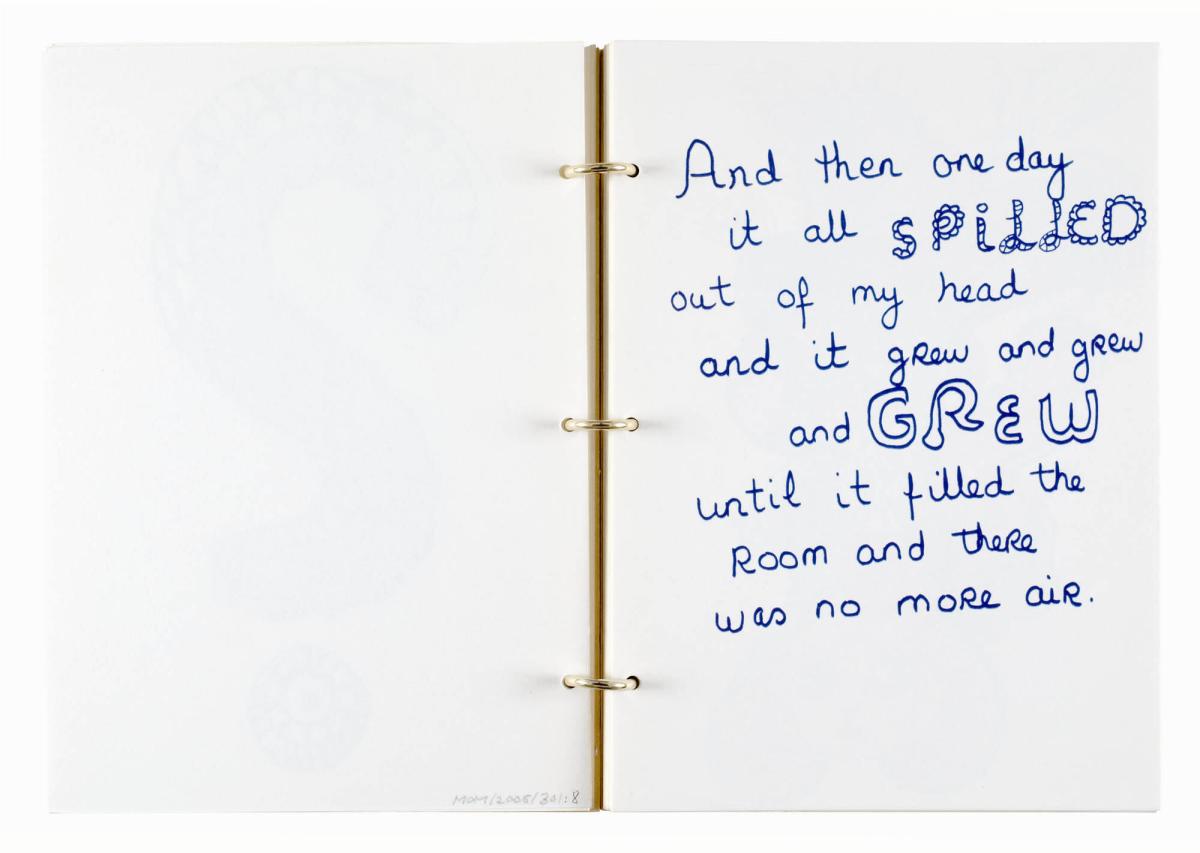 MOM/2005/301:8
And then one day
it all SPiLLED
out of my head
and it gRew and gRew
and GREW
until it filled the
Room and theRe
was no moRe aiR.